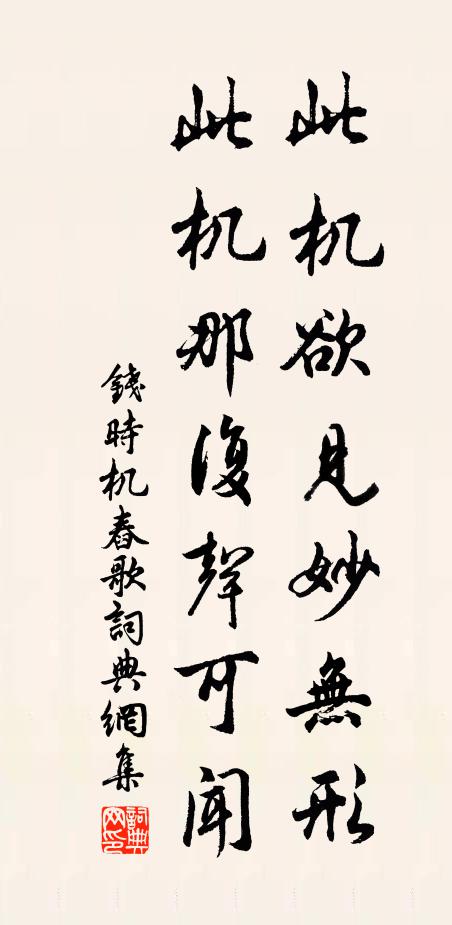 此机欲見妙無形
此机那復聲可聞
錢時机春歌詞典網集
詞典网印